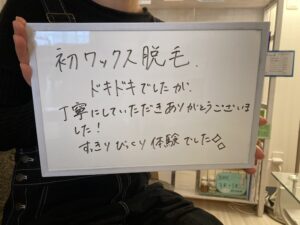 初ワックス脱毛.
ドキドキでしたが、
丁寧にしていただきありがとうございま
した!
すっきりびっくり体験でした◇◇